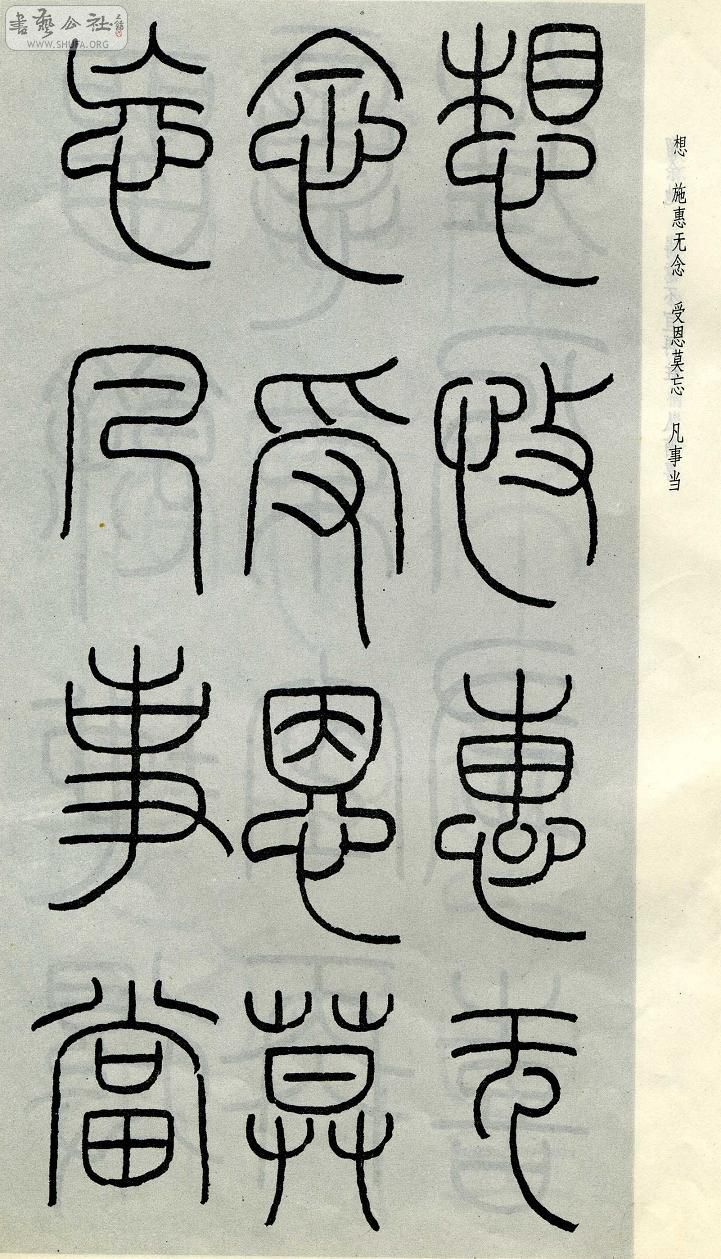 書藝公社
WWW.SHUFA.ORG
想 施惠无念 受恩莫忘 凡事当
想施惠无
念受恩莫
忘凡事當